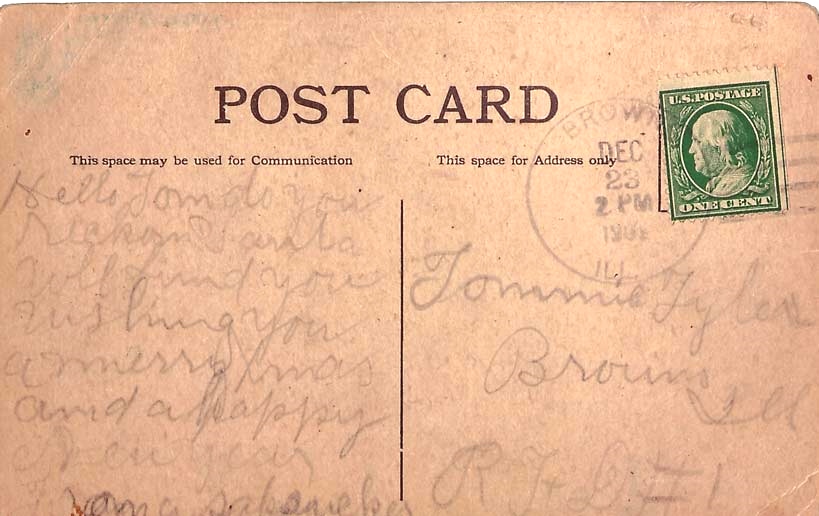 POST CARD
This space may be used for Communication
This space for Address only
U.S. POSTAGE
ONE CENT
BROWN
DEC
23
2 PM
ILL
Hello Tom do you
reckon Santa
will find you
wishing you
a merry Xmas
and a happy
New year
Tommie Tyler
Browns
Ill
R F D # 1